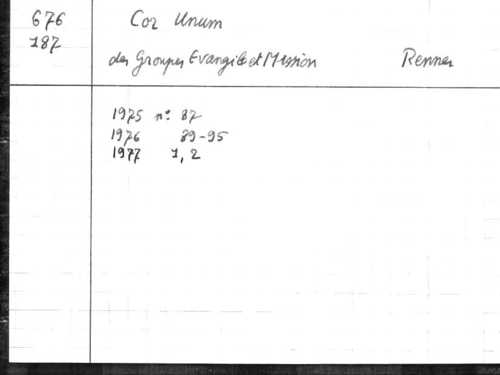 676
187
Cor Unum
des Groupes Evangile et Mission Rennes
1975 n° 87
1976 89-95
1977 1, 2